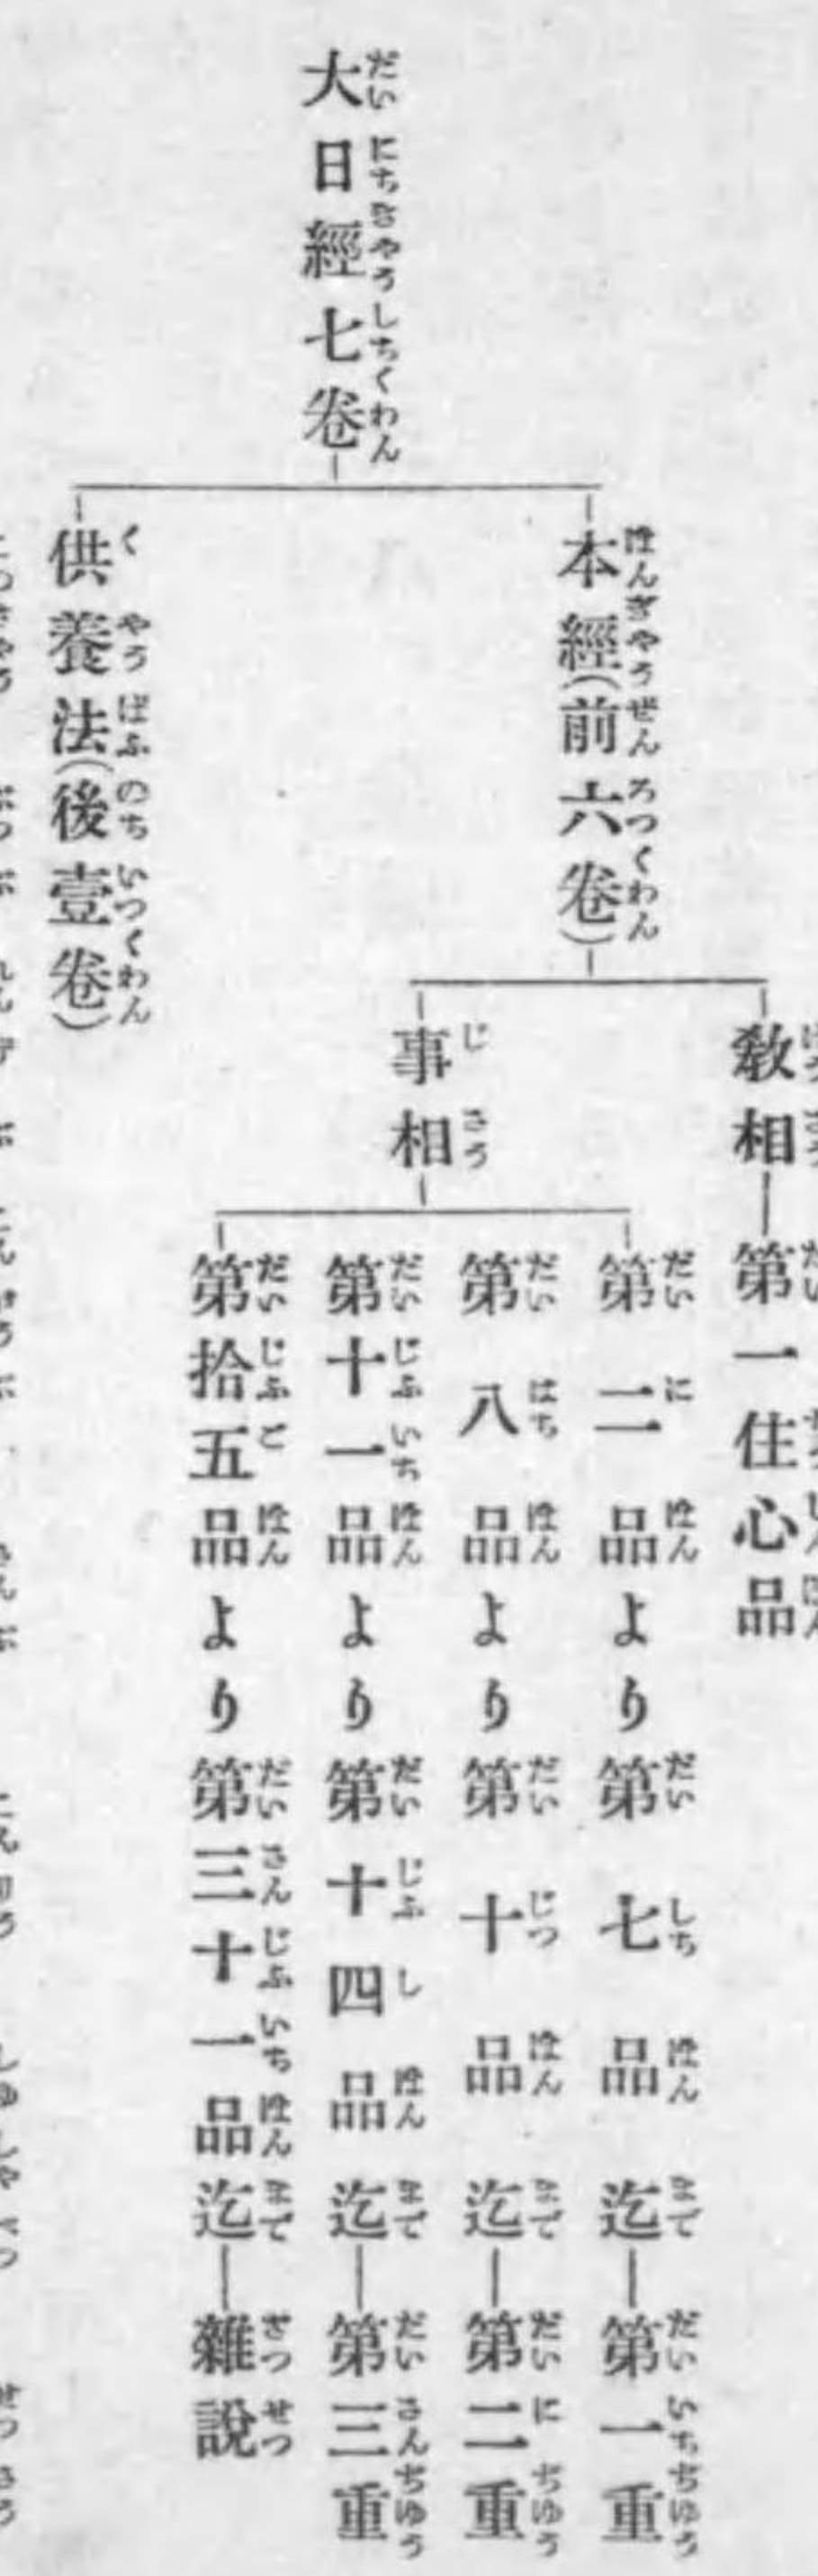 大日經七卷
本經(前六卷)
教相―第一住心品
事相
第二品より第七品迄―第一重
第八品より第十品迄―第二重
第十一品より第十四品迄―第三重
第拾五品より第三十一品迄―雜說
供養法(後壹卷)